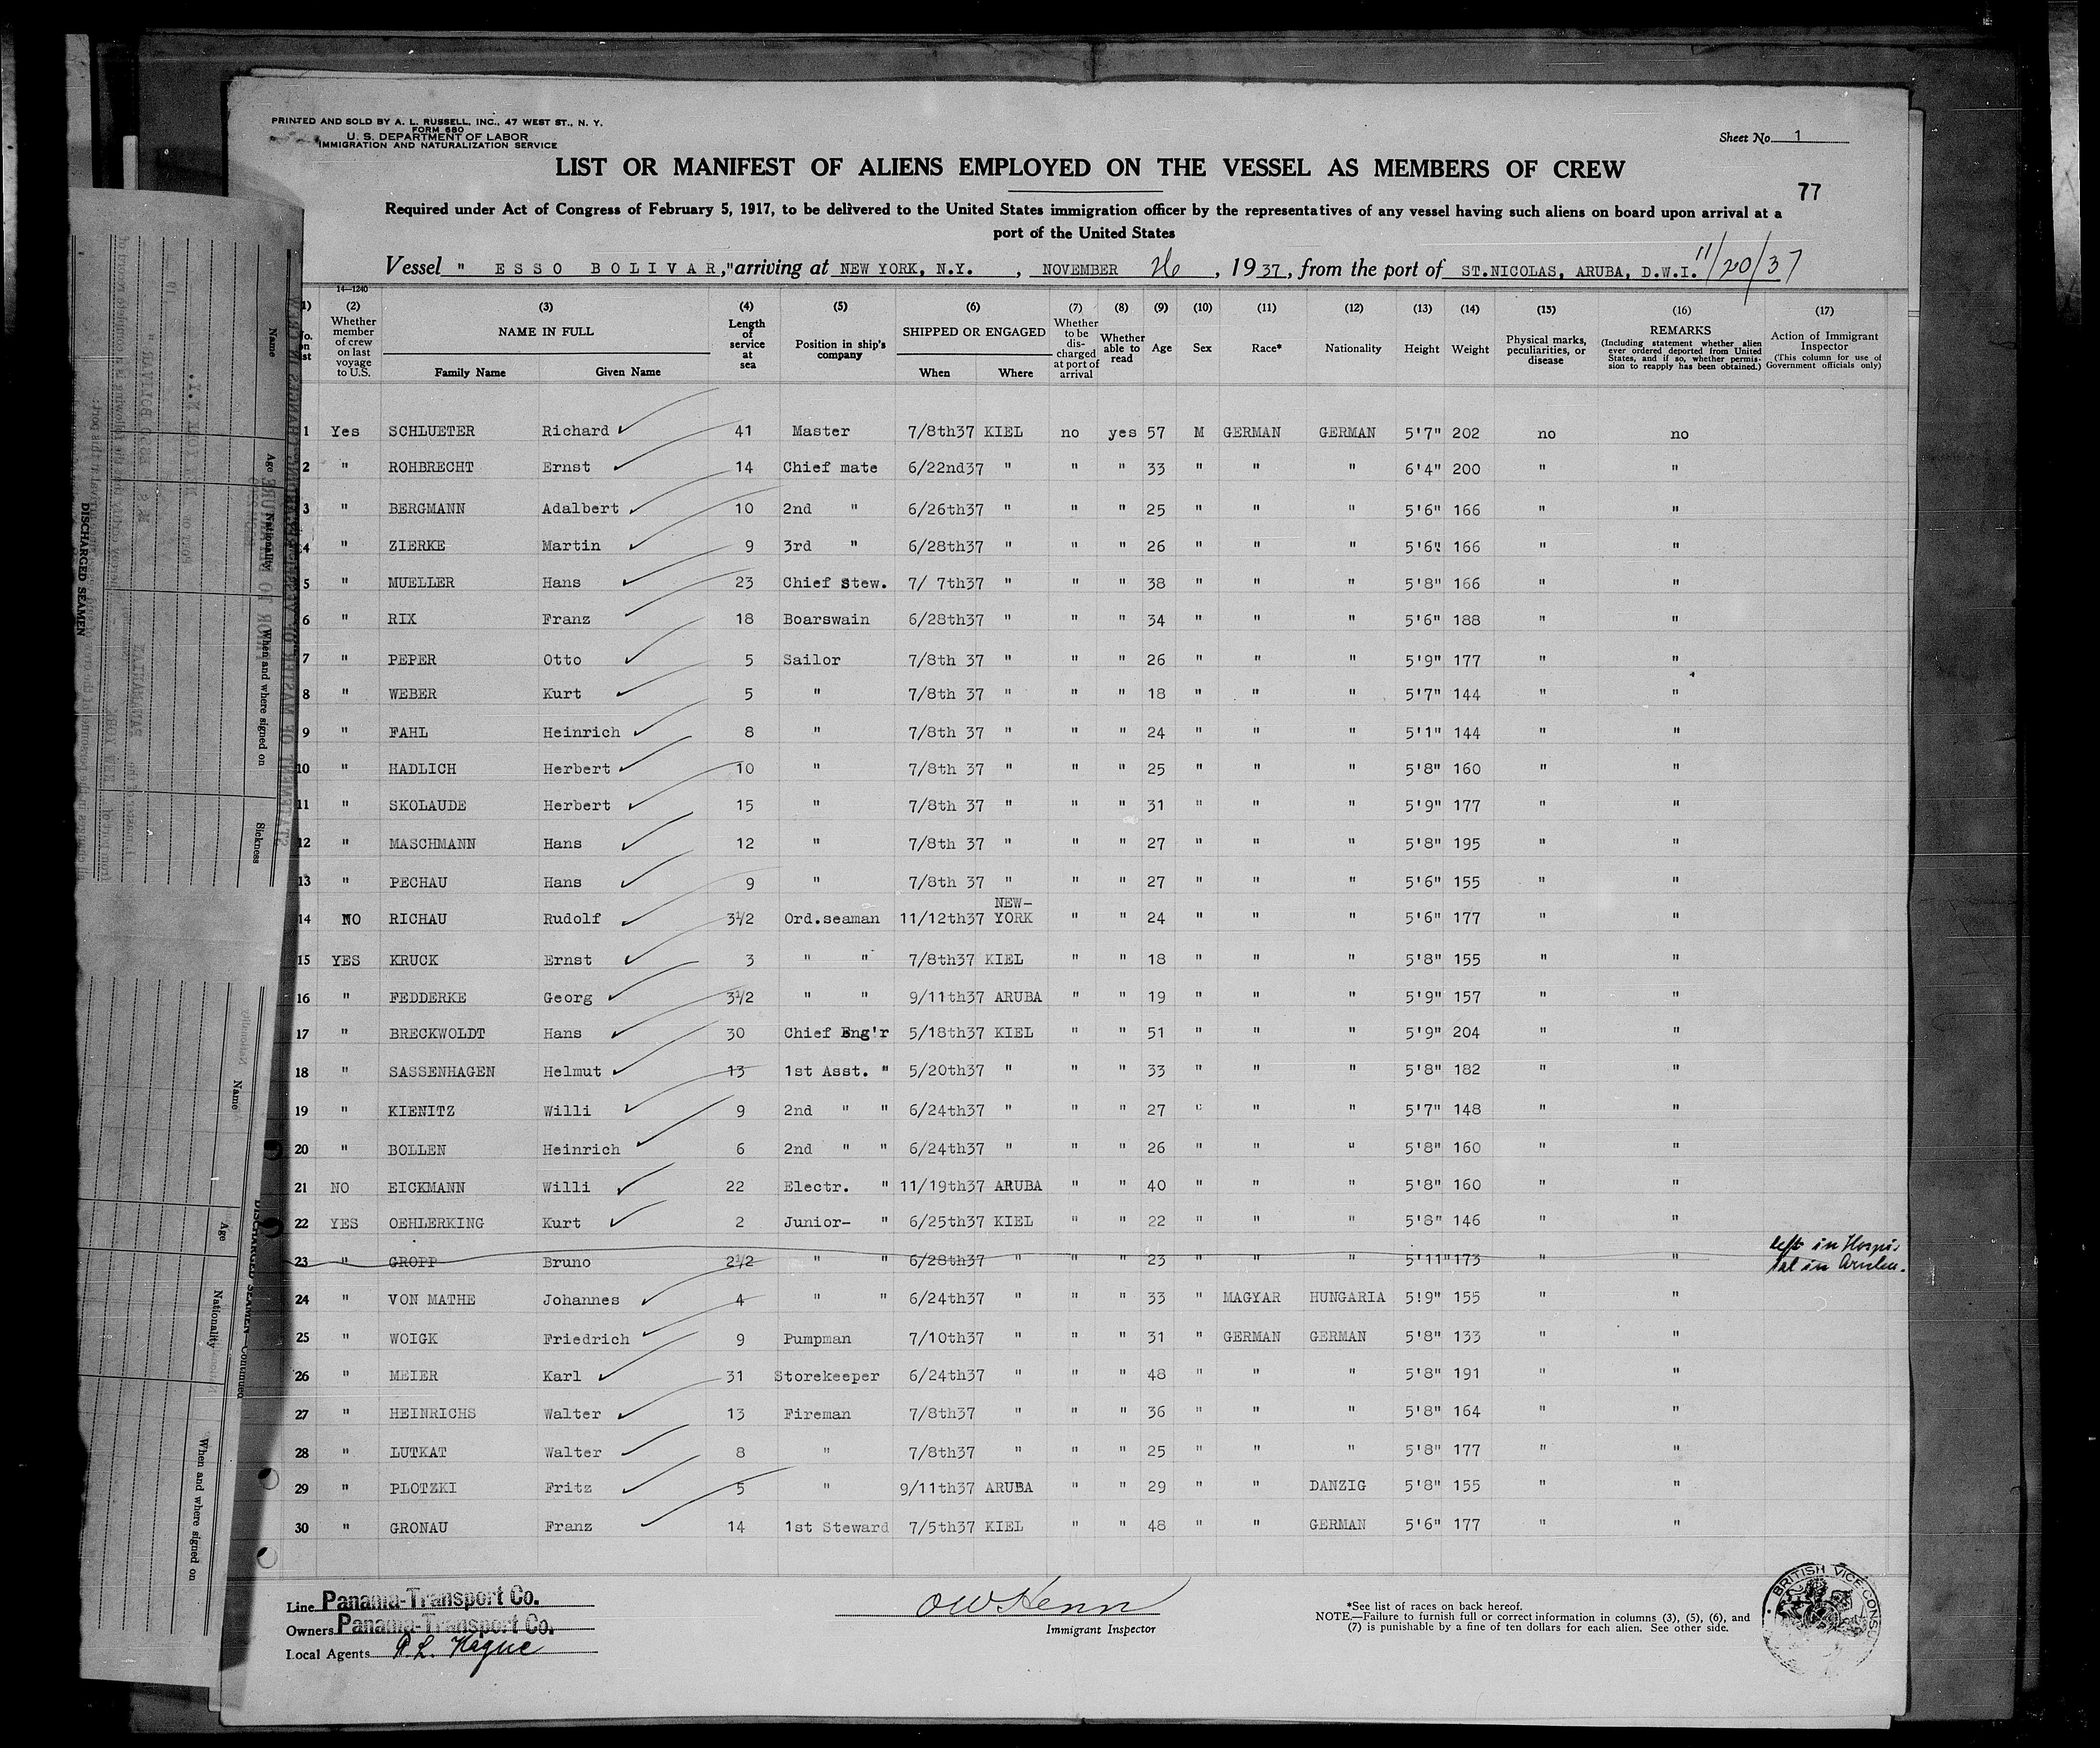 PRINTED AND SOLD BY A. L. RUSSELL, INC., 47 WEST ST., N. Y.
FORM 680
U. S. DEPARTMENT OF LABOR
IMMIGRATION AND NATURALIZATION SERVICE
Sheet No. 1
LIST OR MANIFEST OF ALIENS EMPLOYED ON THE VESSEL AS MEMBERS OF CREW
77
Required under Act of Congress of February 5, 1917, to be delivered to the United States immigration officer by the representatives of any vessel having such aliens on board upon arrival at a
port of the United States
Vessel " ESSO BOLIVAR," arriving at NEW YORK, N.Y. , NOVEMBER 26 , 1937, from the port of ST.NICOLAS, ARUBA, D.W.I. 11/20/37
14—1240
(2) Whether member of crew on last voyage to U.S.
(3) NAME IN FULL Family Name Given Name
(4) Length of service at sea
(5) Position in ship's company
(6) SHIPPED OR ENGAGED When Where
(7) Whether to be discharged at port of arrival
(8) Whether able to read
(9) Age
(10) Sex
(11) Race*
(12) Nationality
(13) Height
(14) Weight
(15) Physical marks, peculiarities, or disease
(16) REMARKS (Including statement whether alien ever ordered deported from United States, and if so, whether permission to reapply has been obtained.)
(17) Action of Immigrant Inspector (This column for use of Government officials only)
1 Yes SCHLUETER Richard 41 Master 7/8th37 KIEL no yes 57 M GERMAN GERMAN 5'7" 202 no no
2 " ROHBRECHT Ernst 14 Chief mate 6/22nd37 " " " 33 " " " 6'4" 200 " "
3 " BERGMANN Adalbert 10 2nd " 6/26th37 " " " 25 " " " 5'6" 166 " "
4 " ZIERKE Martin 9 3rd " 6/28th37 " " " 26 " " " 5'6" 166 " "
5 " MUELLER Hans 23 Chief Stew. 7/ 7th37 " " " 38 " " " 5'8" 166 " "
6 " RIX Franz 18 Boarswain 6/28th37 " " " 34 " " " 5'6" 188 " "
7 " PEPER Otto 5 Sailor 7/8th 37 " " " 26 " " " 5'9" 177 " "
8 " WEBER Kurt 5 " 7/8th 37 " " " 18 " " " 5'7" 144 " "
9 " FAHL Heinrich 8 " 7/8th 37 " " " 24 " " " 5'1" 144 " "
10 " HADLICH Herbert 10 " 7/8th 37 " " " 25 " " " 5'8" 160 " "
11 " SKOLAUDE Herbert 15 " 7/8th 37 " " " 31 " " " 5'9" 177 " "
12 " MASCHMANN Hans 12 " 7/8th 37 " " " 27 " " " 5'8" 195 " "
13 " PECHAU Hans 9 " 7/8th 37 " " " 27 " " " 5'6" 155 " "
14 NO RICHAU Rudolf 3½ Ord.seaman 11/12th37 NEW-YORK " " 24 " " " 5'6" 177 " "
15 YES KRUCK Ernst 3 " " 7/8th37 KIEL " " 18 " " " 5'8" 155 " "
16 " FEDDERKE Georg 3½ " " 9/11th37 ARUBA " " 19 " " " 5'9" 157 " "
17 " BRECKWOLDT Hans 30 Chief Eng'r 5/18th37 KIEL " " 51 " " " 5'9" 204 " "
18 " SASSENHAGEN Helmut 13 1st Asst. " 5/20th37 " " " 33 " " " 5'8" 182 " "
19 " KIENITZ Willi 9 2nd " " 6/24th37 " " " 27 " " " 5'7" 148 " "
20 " BOLLEN Heinrich 6 2nd " " 6/24th37 " " " 26 " " " 5'8" 160 " "
21 NO EICKMANN Willi 22 Electr. " 11/19th37 ARUBA " " 40 " " " 5'8" 160 " "
22 YES OEHLERKING Kurt 2 Junior- " 6/25th37 KIEL " " 22 " " " 5'8" 146 " "
23 " GROPP Bruno 2½ " " 6/28th37 " " " 23 " " " 5'11" 173 " " left in Hospital in Aruba.
24 " VON MATHE Johannes 4 " " 6/24th37 " " " 33 " MAGYAR HUNGARIA 5'9" 155 " "
25 " WOIGK Friedrich 9 Pumpman 7/10th37 " " " 31 " GERMAN GERMAN 5'8" 133 " "
26 " MEIER Karl 31 Storekeeper 6/24th37 " " " 48 " " " 5'8" 191 " "
27 " HEINRICHS Walter 13 Fireman 7/8th37 " " " 36 " " " 5'8" 164 " "
28 " LUTKAT Walter 8 " 7/8th37 " " " 25 " " " 5'8" 177 " "
29 " PLOTZKI Fritz 5 " 9/11th37 ARUBA " " 29 " " DANZIG 5'8" 155 " "
30 " GRONAU Franz 14 1st Steward 7/5th37 KIEL " " 48 " " GERMAN 5'6" 177 " "
Line Panama-Transport Co.
Owners Panama-Transport Co.
Local Agents
Immigrant Inspector
*See list of races on back hereof.
NOTE.—Failure to furnish full or correct information in columns (3), (5), (6), and
(7) is punishable by a fine of ten dollars for each alien. See other side.
BRITISH VICE-CONSU
DISCHARGED SEAMEN
Name
Age
Nationality
When and where signed on
Sickness
DISCHARGED SEAMEN—Continued
Name
Age
Nationality
When and where signed on